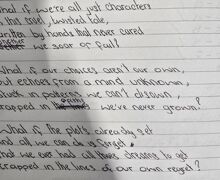 What if we're all just characters
this cruel, twisted tale,
written by hands that never cared
we soar or fail?
What if our choices aren't our own,
echoes from a mind unknown,
Stuck in patterns we can't disown,
trapped in we've never grown?
What if the plot's already set
and all we can do is forget,
that we ever had dreams to get
trapped in the lines of our own regret?